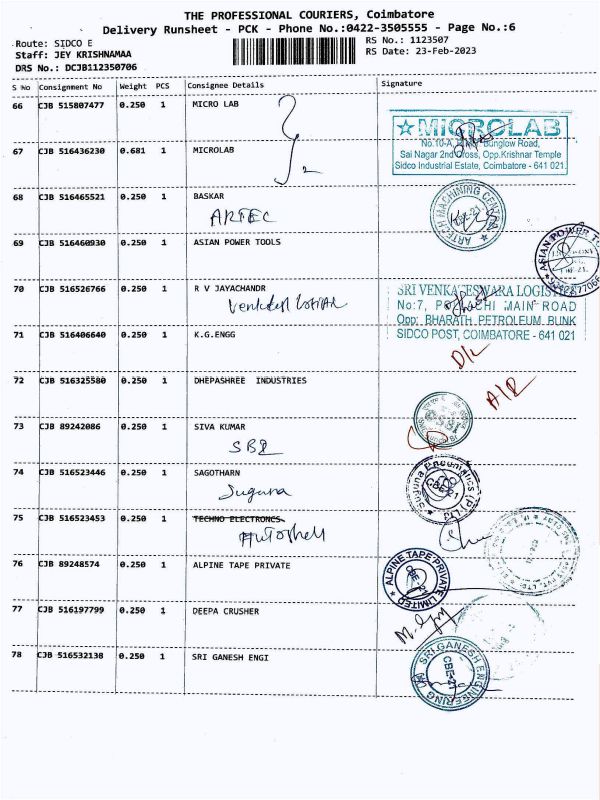 THE PROFESSIONAL COURIERS, Coimbatore
Delivery Runsheet - PCK - Phone No.:0422-3505555 - Page No.:6
Route: SIDCO E
RS No.: 1123507
Staff: JEY KRISHNAMAA
RS Date: 23-Feb-2023
DRS No.: DCJB112350706
S No Consignment No Weight PCS Consignee Details Signature
66 CJB 515807477 0.250 1 MICRO LAB
MICROLAB
No.10-A, Bunglow Road,
67 CJB 516436230 0.681 1 MICROLAB
Sai Nagar 2nd Cross, Opp.Krishnar Temple
Sidco Industrial Estate, Coimbatore - 641 021.
68 CJB 516465521 0.250 1 BASKAR
ARTEC
ARTECH MACHINING CENTRE
69 CJB 516460930 0.250 1 ASIAN POWER TOOLS
ASIAN POWER
70 CJB 516526766 0.250 1 R V JAYACHANDR
SRI VENKATESWARA LOGIST
No:7, POLLACHI MAIN ROAD
Opp: BHARATH PETROLEUM BUNK
71 CJB 516406640 0.250 1 K.G.ENGG
SIDCO POST, COIMBATORE - 641 021
D/L
72 CJB 516325580 0.250 1 DHEPASHREE INDUSTRIES
73 CJB 89242086 0.250 1 SIVA KUMAR
SBI
74 CJB 516523446 0.250 1 SAGOTHARN
Suguna
Suguna Pneumatics (P) Ltd
CBE-21
75 CJB 516523453 0.250 1 TECHNO ELECTRONCS
76 CJB 89248574 0.250 1 ALPINE TAPE PRIVATE
ALPINE TAPE PRIVATE LIMITED
77 CJB 516197799 0.250 1 DEEPA CRUSHER
78 CJB 516532138 0.250 1 SRI GANESH ENGI
SRI GANESH ENGINEERING
CBE-21